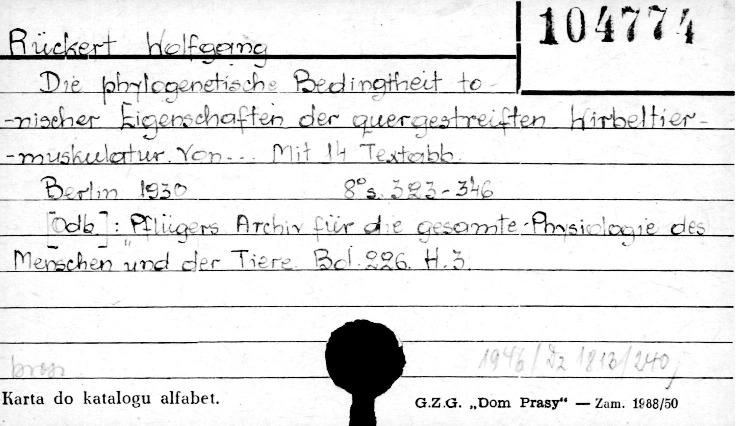 104774
Rückert Wolfgang
Die phylogenetische Bedingtheit to-
-nischer Eigenschaften der quergestreiften Wirbeltier-
-muskulatur. Von... Mit 14 Textabb.
Berlin 1930 8° s. 323-346
[Odb.]: Pflügers Archiv für die gesamte Physiologie des
Menschen und der Tiere. Bd. 226. H. 3.
brosz. 1946/Dz 1813/240
Karta do katalogu alfabet. G.Z.G. „Dom Prasy“ — Zam. 1988/50